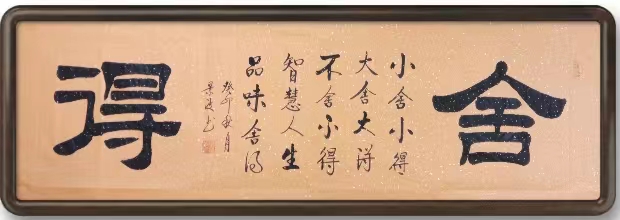 舍
小舍小得
大舍大得
不舍小得
智慧人生
品味舍得
癸卯月
得